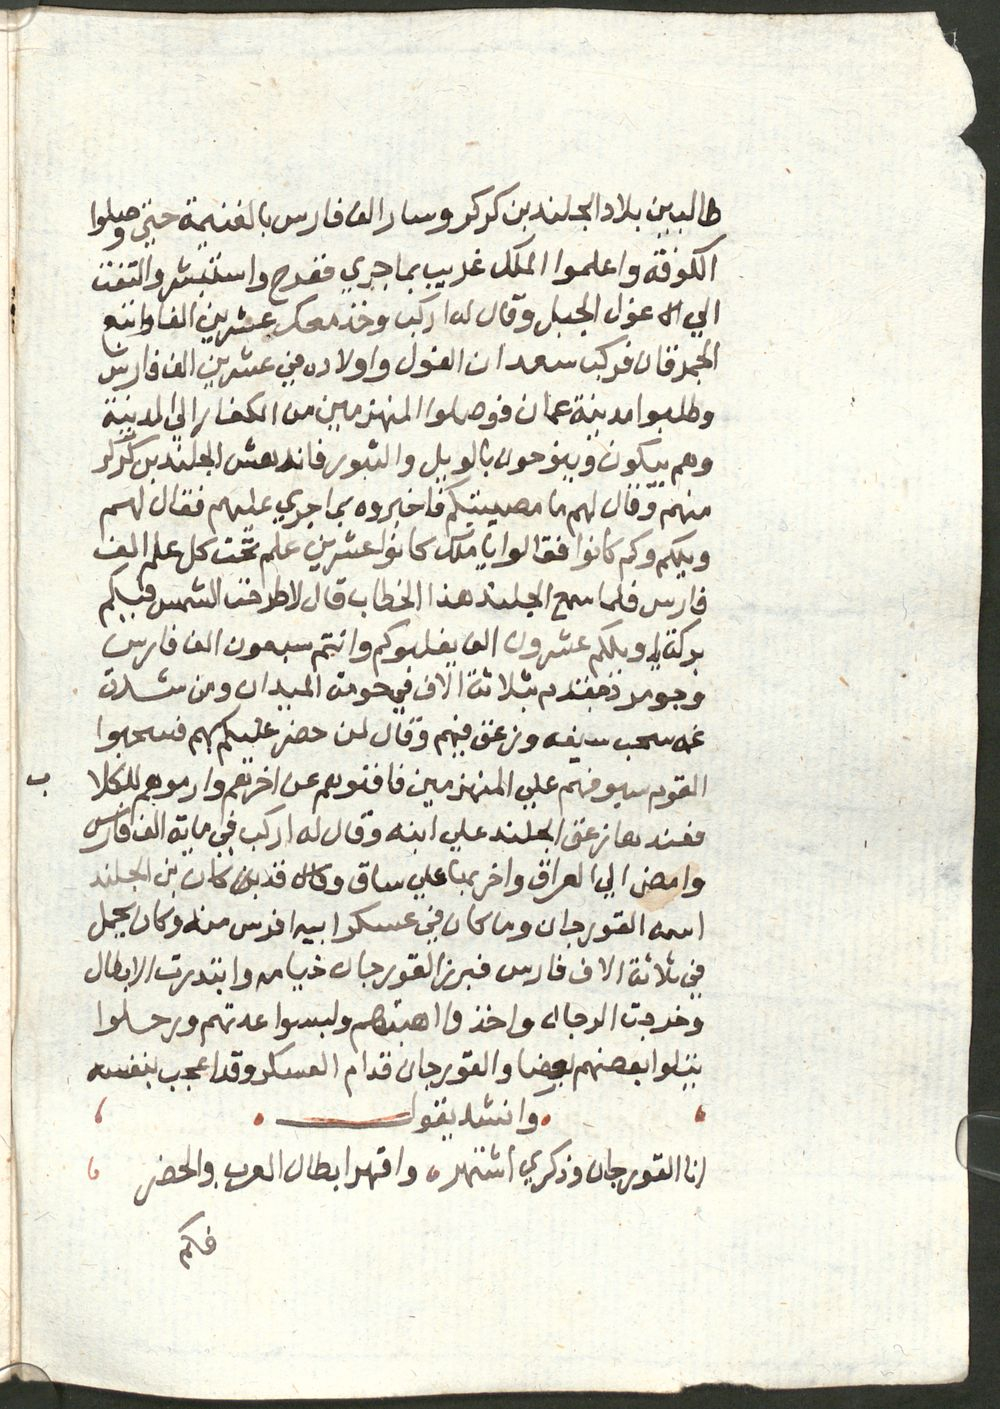 طالبين بلاد الجلند بن كركر وسار الف فارس بالغنيمة حتي وصلوا
الكوفة واعلموا الملك غريب بما جري ففرح واستبشر والتفت
الي غول الجبل وقال له اركب وخذ معك عشرين الفا واتبع
الجمرقان فركب سعدان الغول واولاده في عشرين الف فارس
وطلبوا مدينة عمان فوصلوا المنهزمين من الكفار الي المدينة
وهم يبكون وينوحون بالويل والثبور فاندهش الجلند بن كركر
منهم وقال لهم ما مصيبتكم فاخبروه بما جري عليهم فقال لهم
ويلكم وكم كانوا فقالوا يا ملك كانوا عشرين علم تحت كل علم الف
فارس فلما سمع الجلند هذا الخطاب قال لا طرحت الشمس فيكم
بركة يا ويلكم عشرون الف يغلبوكم وانتم سبعون الف فارس
وجومرد بثلاثة الاف في حومة الميدان ومن شدة
غمه سحب سيفه وزعق فيهم وقال لمن حضر عليكم بهم فسحبوا
القوم سيوفهم علي المنهزمين فافنوهم عن اخرهم وارموهم للكلاب
فعندها زعق الجلند علي ابنه وقال له اركب في ماية الف فارس
وامض الي العراق واخربها علي ساق وكان بن الجلند
اسمه القورجان وما كان في عسكر ابيه افرس منه وكان يحمل
في ثلاثة الاف فارس فبرز القورجان خيامه وابتدرت الابطال
وخرجت الرجال واخذوا اهبتهم ولبسوا عدتهم ورحلوا
يتلوا بعضهم بعضا والقورجان قدام العسكر وقد اعجب بنفسه
وانشد يقول
انا القورجان وذكري اشتهر واقهر ابطال العرب والحضر
فكم